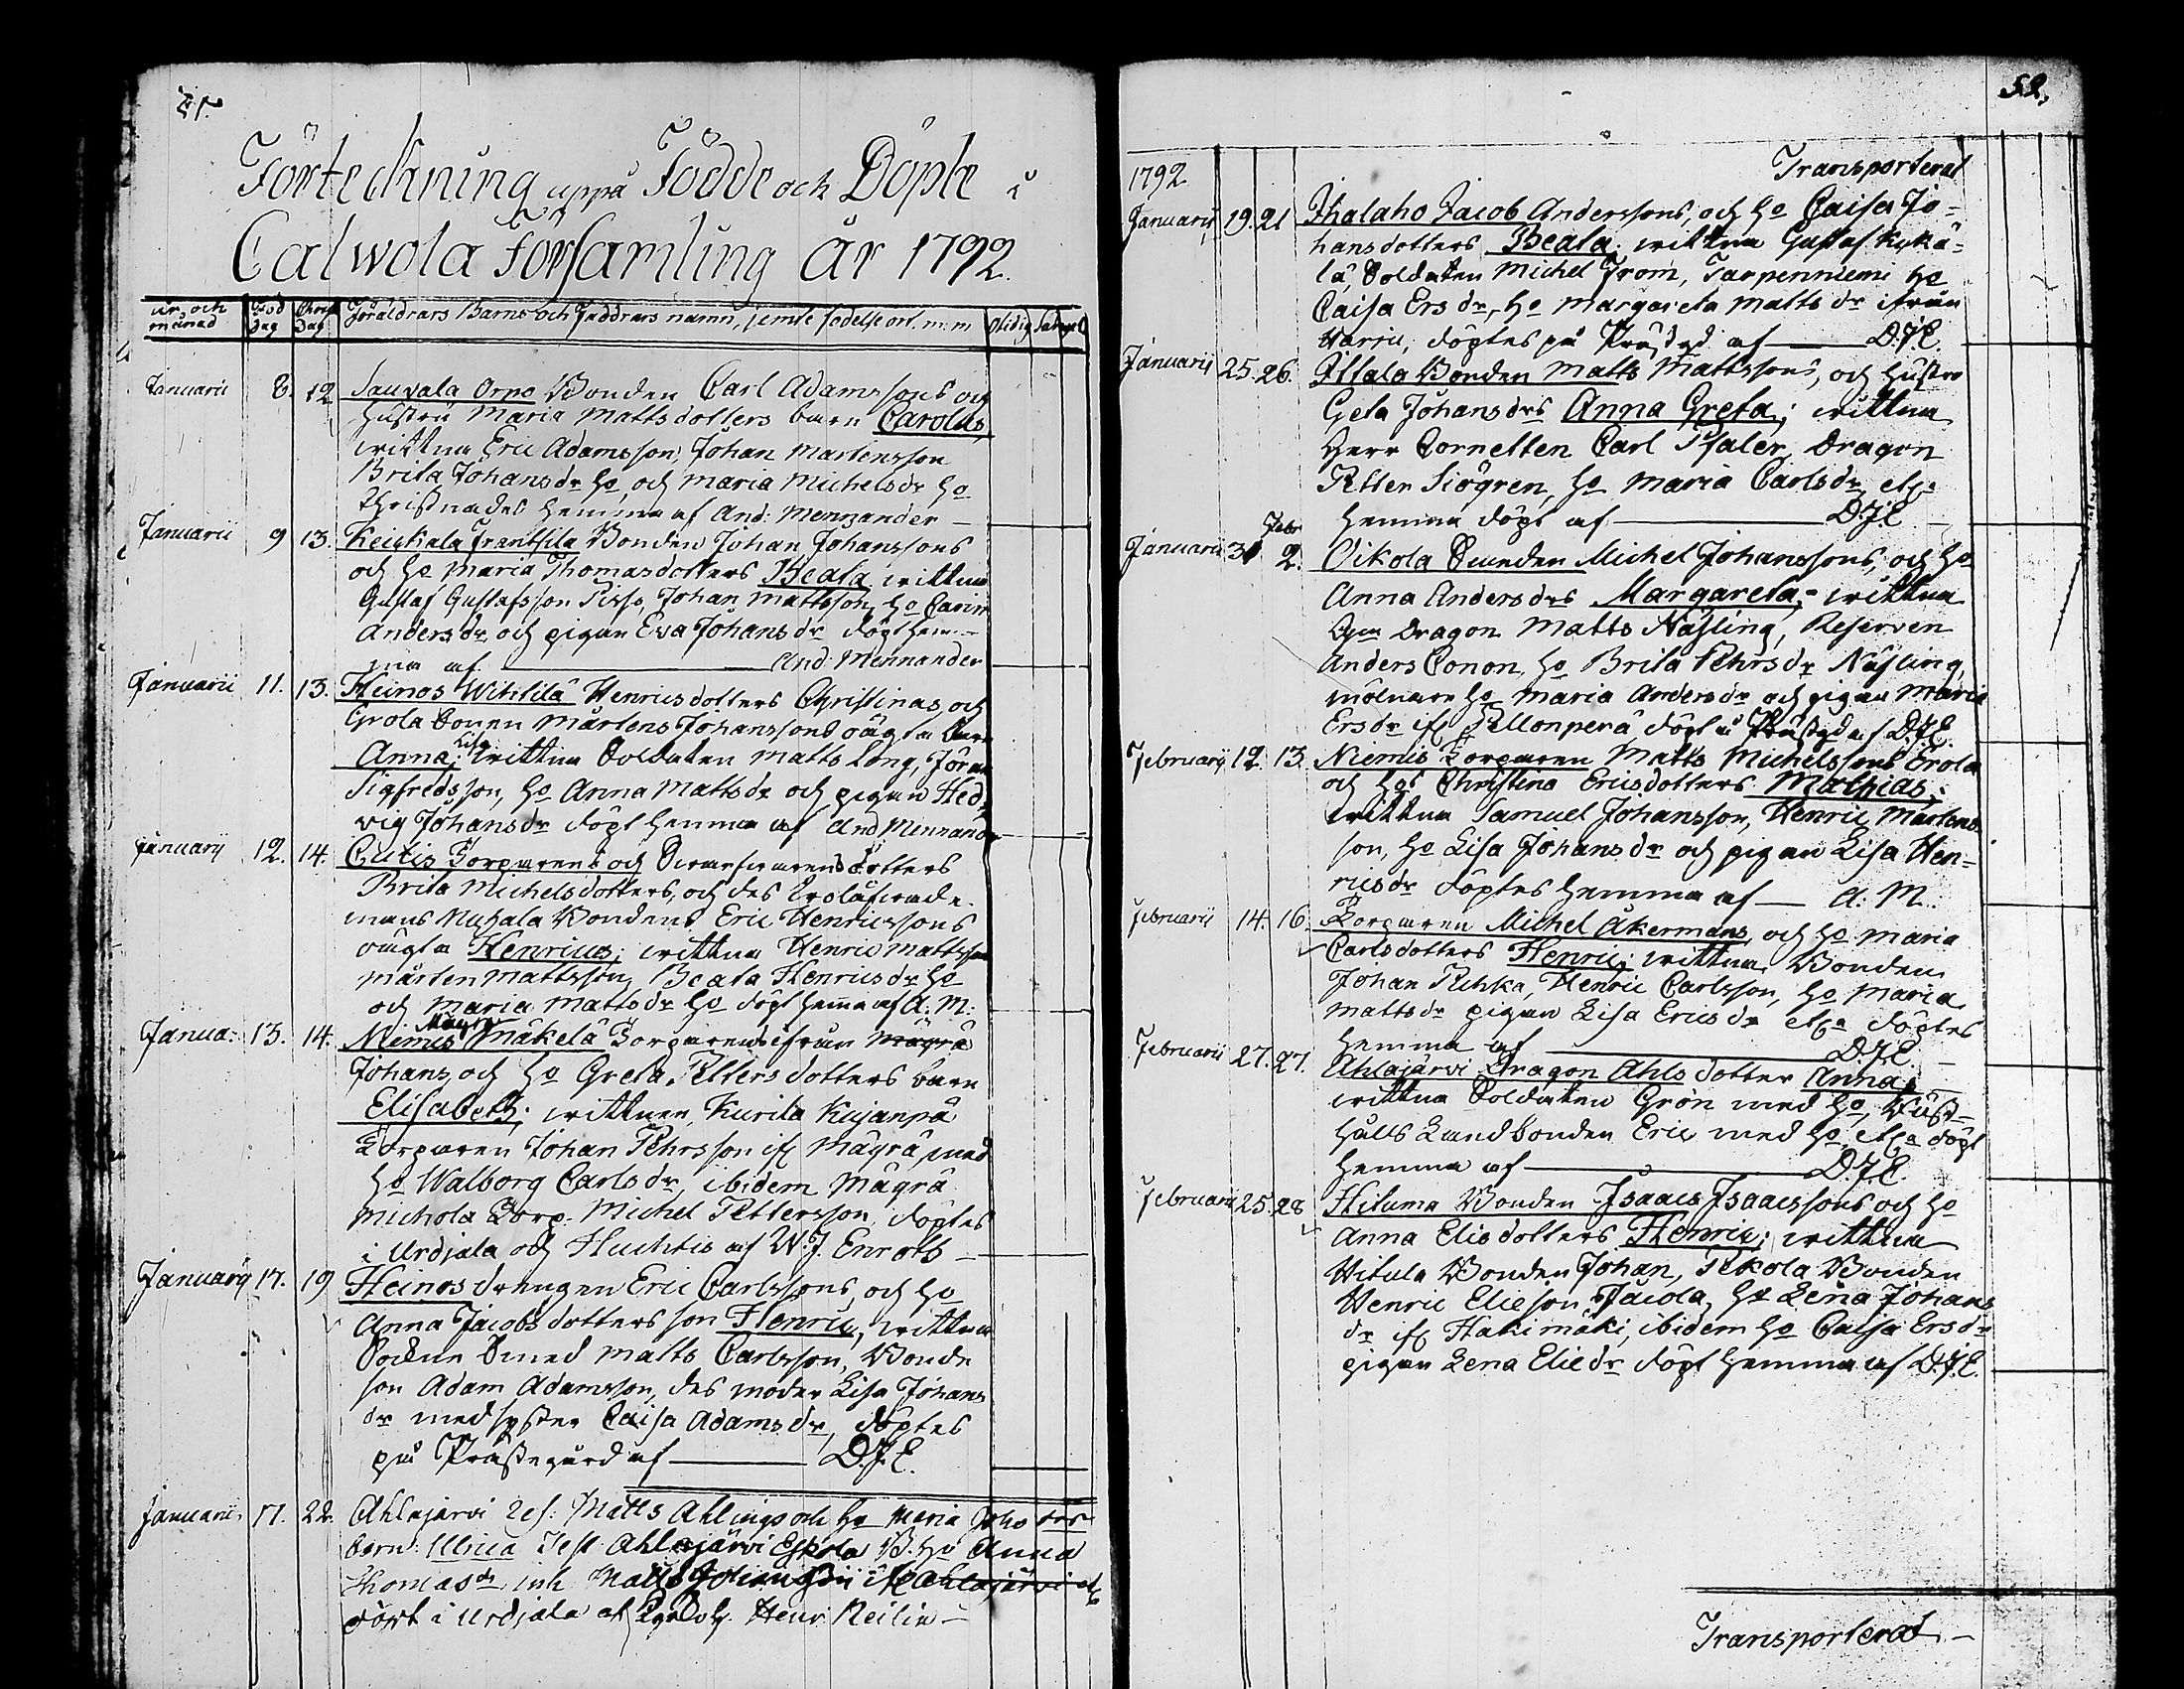 51.
Förteckning uppå Födde och Döpte i
Calwola Församling år 1792.
år och månad Föd Dag Christ Dag Föräldrars Barns och Faddrars namn, jemte födelse ort. m: m Oächta Saknat
Januarii 8. 12 Sauvala Orpo Bonden Carl Adamssons och
Hustru Maria Mattsdotters barn Carolus,
wittnen Eric Adamsson, Johan Mårtensson
Brita Johansdr Ho, och Maria Michelsdr Ho
Christnades hemma af And: Mennander —
Januarii 9 13. Keiskala Frantsila Bonden Johan Johanssons
och Ho Maria Thomasdotters Beata, wittnen
Gustaf Gustafsson Pisso, Johan Mattsson, Ho Carin
Andersdr och pigan Eva Johansdr döpt hem-
ma af — And: Mennander
Januarii 11. 13. Heinos Wihtilä Henricsdotters Christinas, och
Erola sonen Mårtens Johanssons oägta barn
Anna Lisa: wittnen Soldaten Matts Long, Jöran
Sigfredsson, Ho Anna Mattsdr och pigan Hed-
vig Johansdr döpt hemma af And Mennander
Januarij 12. 14. Cutis Torparens och dotters
Brita Michelsdotters, och des
mans Bondens Eric Henricssons
oägta Henricus; wittnen Henric Mattsson
Mårten Mattsson, Beata Henricsdr Ho
och Maria Mattsdr Ho döpt hema af A: M:
Janua: 13. 14. Niemis Mäkelä Torparens ifrån Mägrä
Mägrä
Johans, och Ho Greta Pettersdotters barn
Elisabeth; wittnen, Kurila Kujanpä
Torparen Johan Pehrsson ifr Mägrä, med
Ho Walborg Carlsdr, ibidem Mägrä
Michola Torp. Michel Pettersson, döptes
i Urdjala och Huchtis af W: J Enroth —
Januarij 17. 19 Heinos drengen Eric Carlssons, och Ho
Anna Jacobsdotters son Henric, wittnen
Sockne Smed Matts Carlsson, Bonde
son Adam Adamsson, des moder Lisa Johans
dr med syster Caisa Adamsdr, döptes
på Prästegård af — D. J. E.
Januarii 17. 22. Ahlajarvi Ref: Matts Ahlings och Ho Maria Johs drs
barn: Ulrica Test Ahlajärvi Eskola B. Ho Anna
Thomasdr, inh Matts ifr Ahlajärvi etc
döpt i Urdjala af Henr. Reilin —
52.
1792 Transporterat
Januarij 19. 21 Jhalaho Jacob Anderssons, och Ho Caisa Jo-
hansdotters Beata. wittnen Gustaf Kykä-
lä, Soldaten Michel From, Tarpenniemi Ho
Caisa Ersdr, Ho Margareta Mattsdr ifrån
Harju, döptes på Prästgd af — D. J. E.
Januarii 25. 26. Illala Bonden Matts Mattssons, och Hustru
Geta Johansdrs Anna Greta; wittnen
Herr Cornetten Carl Pfaler, Dragon
Petter Siögren, Ho Maria Carlsdr etc:
hemma döpt af — D. J. E
Januarii 31 Febr 2. Oikola Michel Johanssons, och Ho
Anna Andersdrs Margareta; wittnen
Dragon Matts Näsling, Reserven
Anders Conon, Ho Brita Pehrsdr Näsling,
Ho Maria Andersdr och pigan Maria
Ersdr ifr Pellonperä döpt i Prästgd af D. J. E.
Februarij 12. 13. Niemis Torparen Matts Michelssons Erola
och Hos Christina Ericsdotters Mathias;
wittnen Samuel Johansson, Henric Mårtens-
son, Ho Lisa Johansdr och pigan Lisa Hen-
ricsdr döptes hemma af — A: M.
Februarii 14. 16. Torparen Michel Åkermans, och Ho Maria
Carlsdotters Henric; wittnen Bonden
Johan Puhka, Henric Carlsson, Ho Maria
Mattsdr pigan Lisa Ericsdr etc: döptes
hemma af — D. J. E.
Februarii 27. 27. Ahlajärvi Dragon Ahls dotter Anna;
wittnen Soldaten Grön med Ho, Rust-
hålls Landbonden Eric med Ho, etc: döpt
hemma af — D. J. E.
Februarii 25. 28 Hituma Bonden Isaacs Isaacssons och Ho
Anna Elisdotters Henric; wittnen
Hitula Bonden Johan, Pekola Bonden
Henric Elieson, Jacola, Ho Lena Johans
dr ifr Hakimäki, ibidem Ho Caisa Ersdr
pigan Lena Eliedr döpt hemma af D. J. E.
Transporterat —